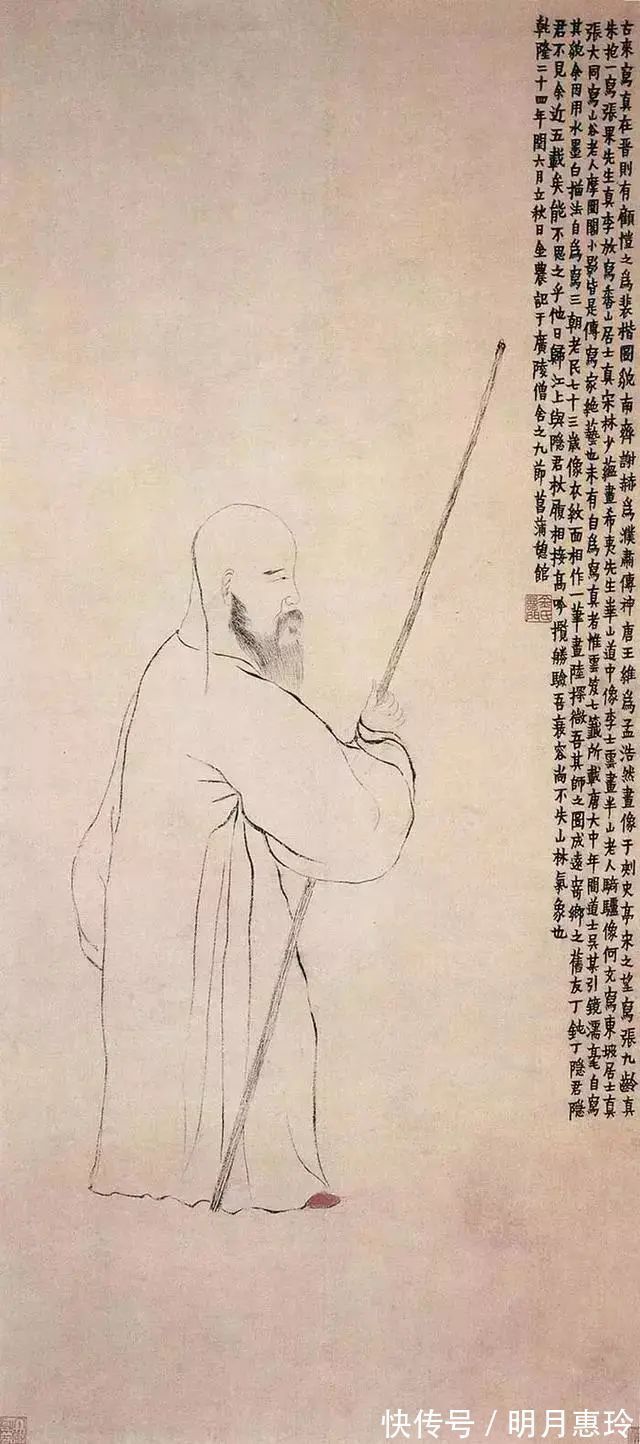 古來寫真在晋則有顧愷之爲裴楷圖貌南齊謝赫爲濮肅傳神唐王維爲孟浩然畫像于刺史亭宋之望寫張九齡真
朱抱一寫張果先生真李放寫香山居士真宋林少蘊畫希夷先生華山道中像李士雲畫半山老人騎驢像何充寫東坡居士真
張大同寫山谷老人摩圍閣小影皆是傳寫家絶藝也未有自爲寫真者惟雲笈七籤所載唐大中年間道士吳某引鏡濡毫自寫
其貌余因用水墨白描法自爲寫三朝老民七十三歲像衣紋面相作一筆畫陸探微吾其師之圖成遠寄鄉之舊友丁鈍丁隱君隱
君不見余近五載矣能不思之乎他日歸江上與隱君杖履相接高吟攬勝驗吾衰容尚不失山林氣象也
乾隆二十四年閏六月立秋日金農記于廣陵僧舍之九節菖蒲憩館
快传号/明月惠玲